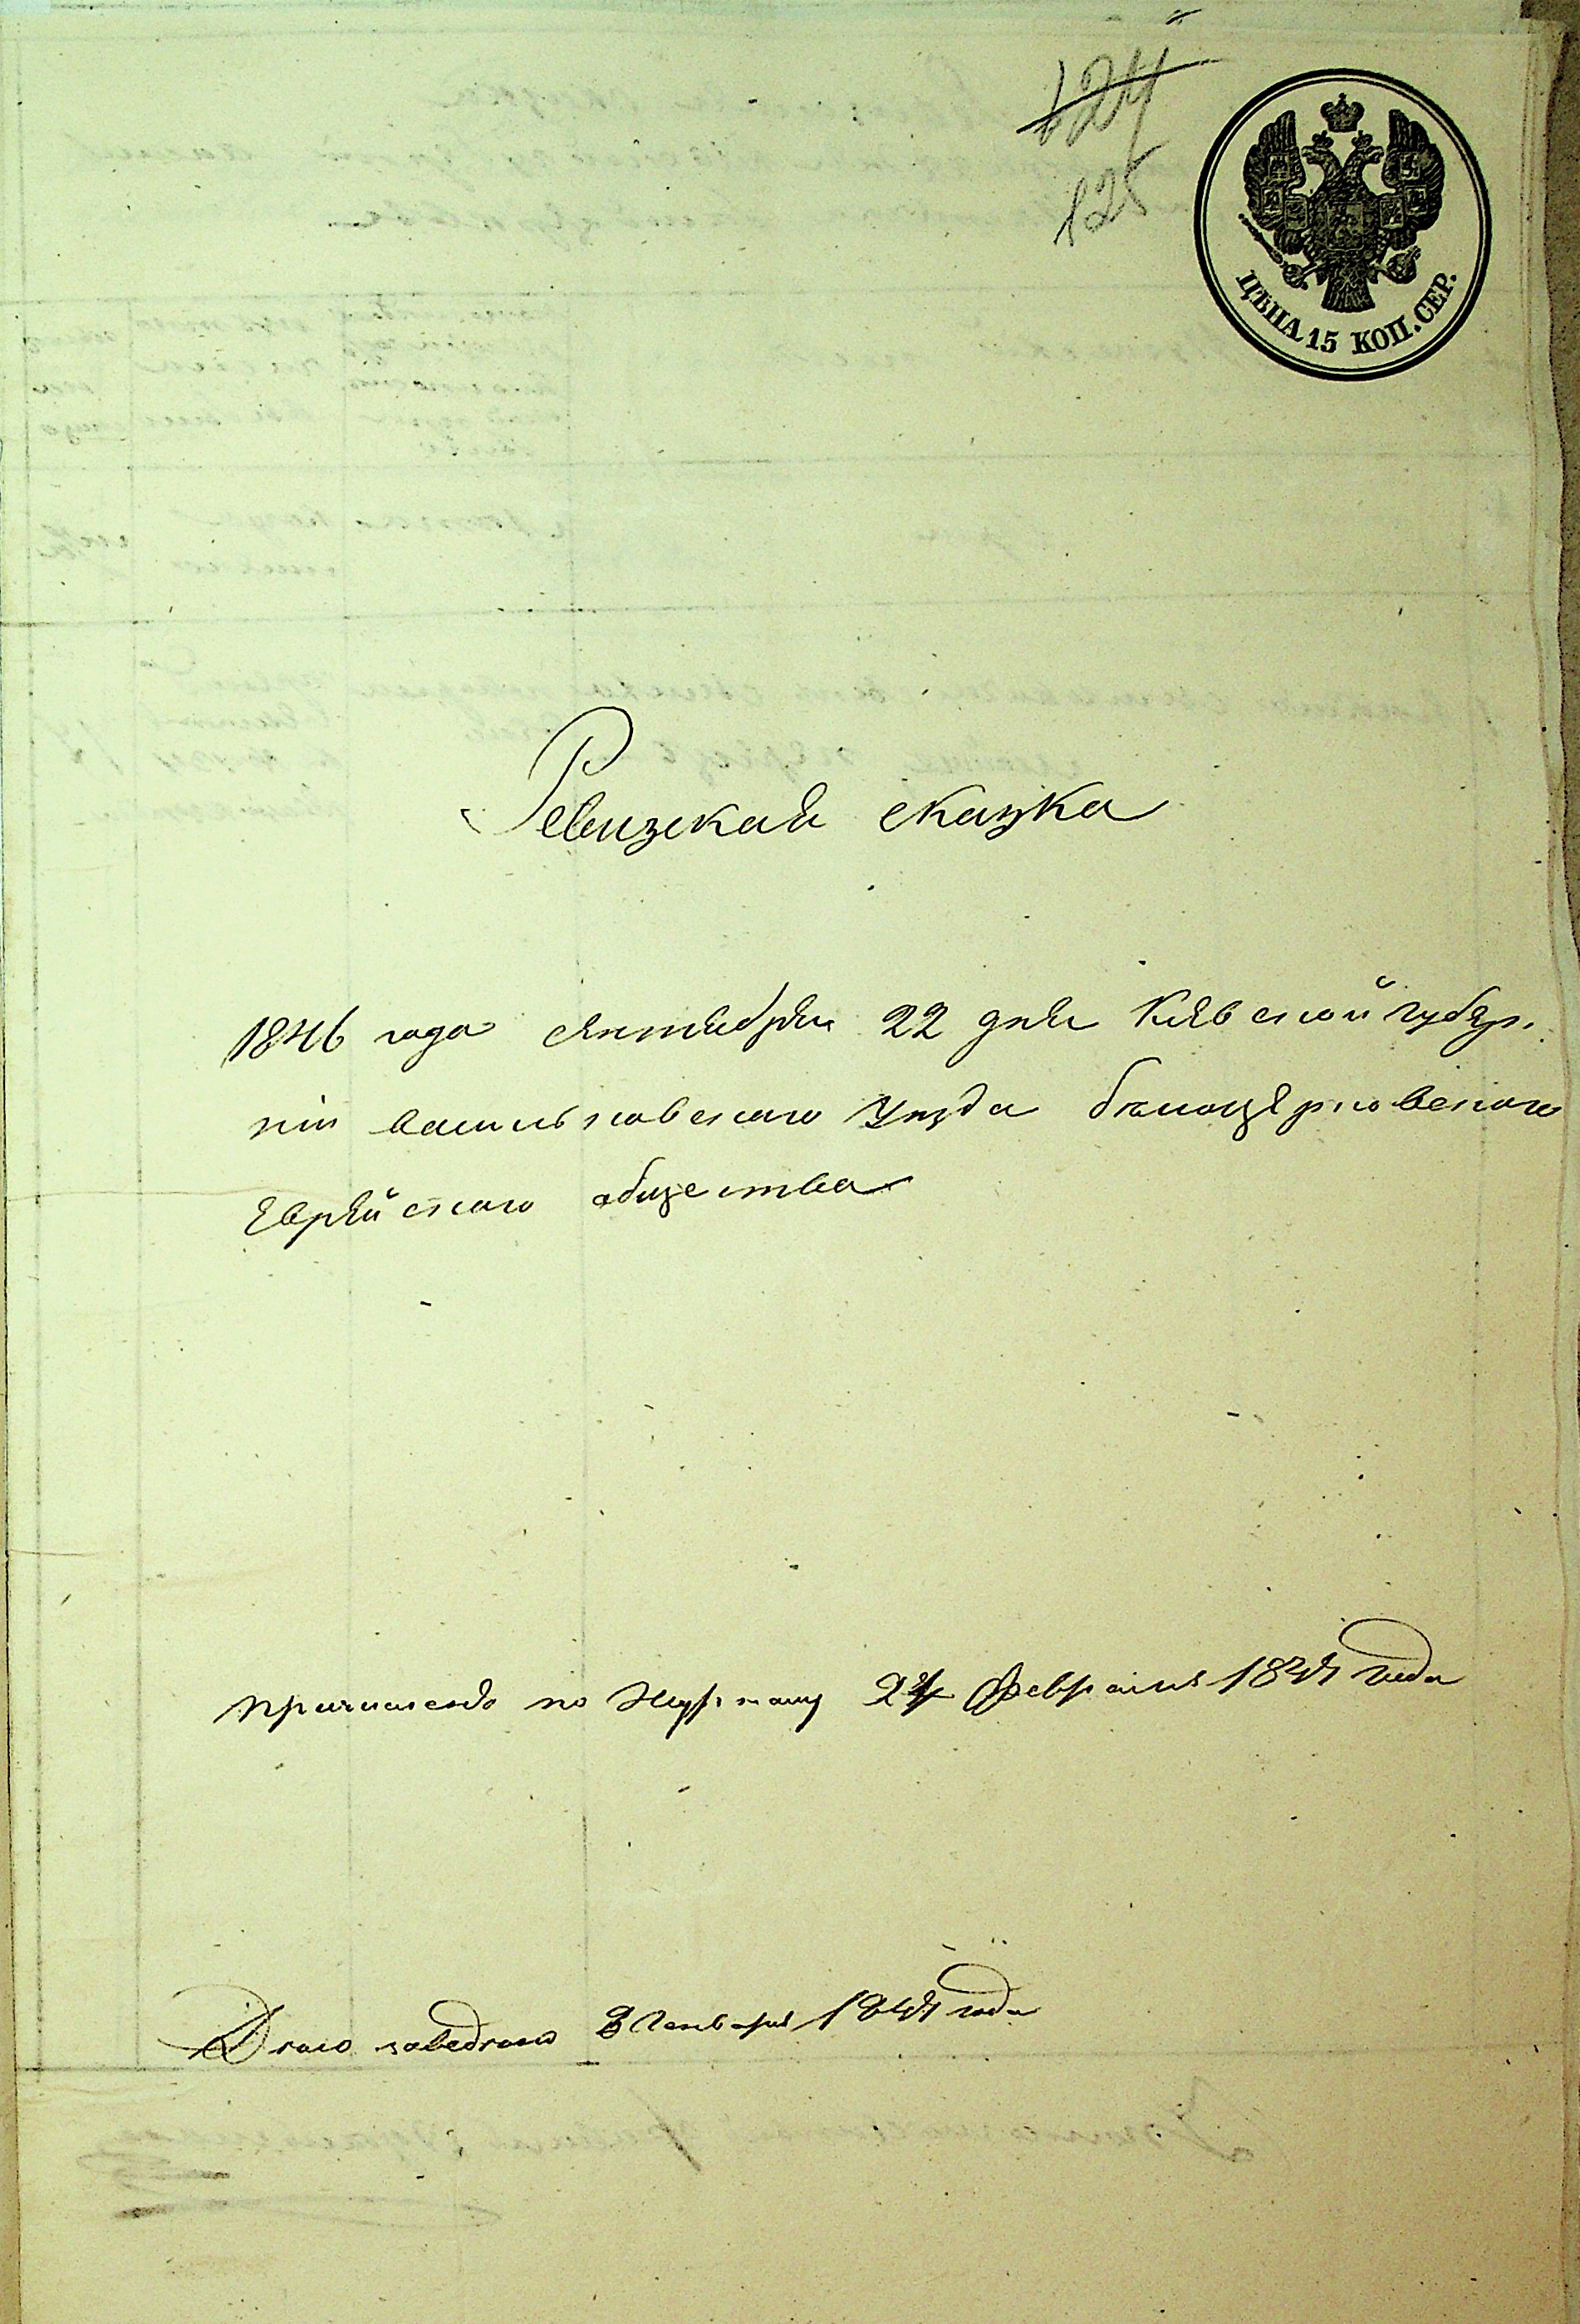 124
125
ЦѢНА 15 КОП. СЕР.
Ревизская сказка
1846 года сентября 22 дня Кіевской губер-
ніи васильковского уезда белоцерковского
Еврейского общества
причислено по Журналу 24 февраля 1847 года
Дело заведено 3 Генваря 1847 года